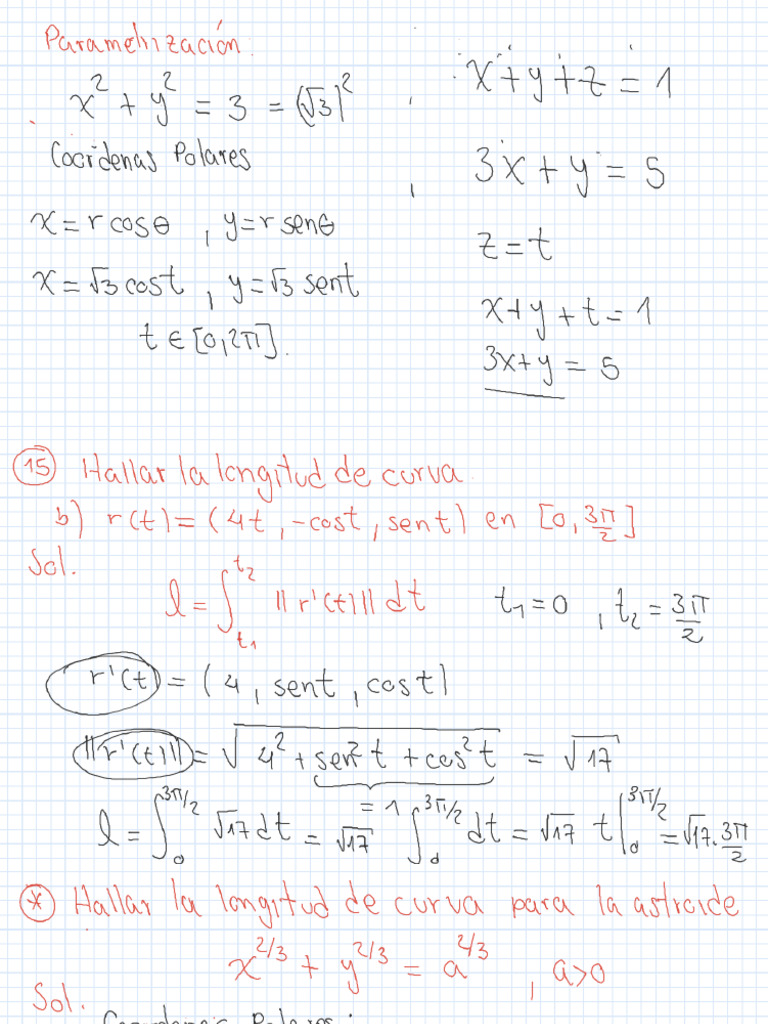 Parametrización.
x² + y² = 3 = (√3)²
Coordenas Polares
x = r cosθ , y = r senθ
x = √3 cost , y = √3 sent
t ∈ [0, 2π].
x + y + z = 1
, 3x + y = 5
z = t
x + y + t = 1
3x + y = 5
15 Hallar la longitud de curva.
b) r(t) = (4t, -cost, sent) en [0, 3π/2]
Sol.
l = ∫_{t₁}^{t₂} ||r'(t)|| dt t₁ = 0 , t₂ = 3π/2
r'(t) = (4, sent, cost)
||r'(t)|| = √(4² + sen²t + cos²t) = √17
= 1
l = ∫₀^{3π/2} √17 dt = √17 ∫₀^{3π/2} dt = √17 t |₀^{3π/2} = √17 · 3π/2
* Hallar la longitud de curva para la astroide
x^{2/3} + y^{2/3} = a^{2/3} , a>0
Sol.
Polares: